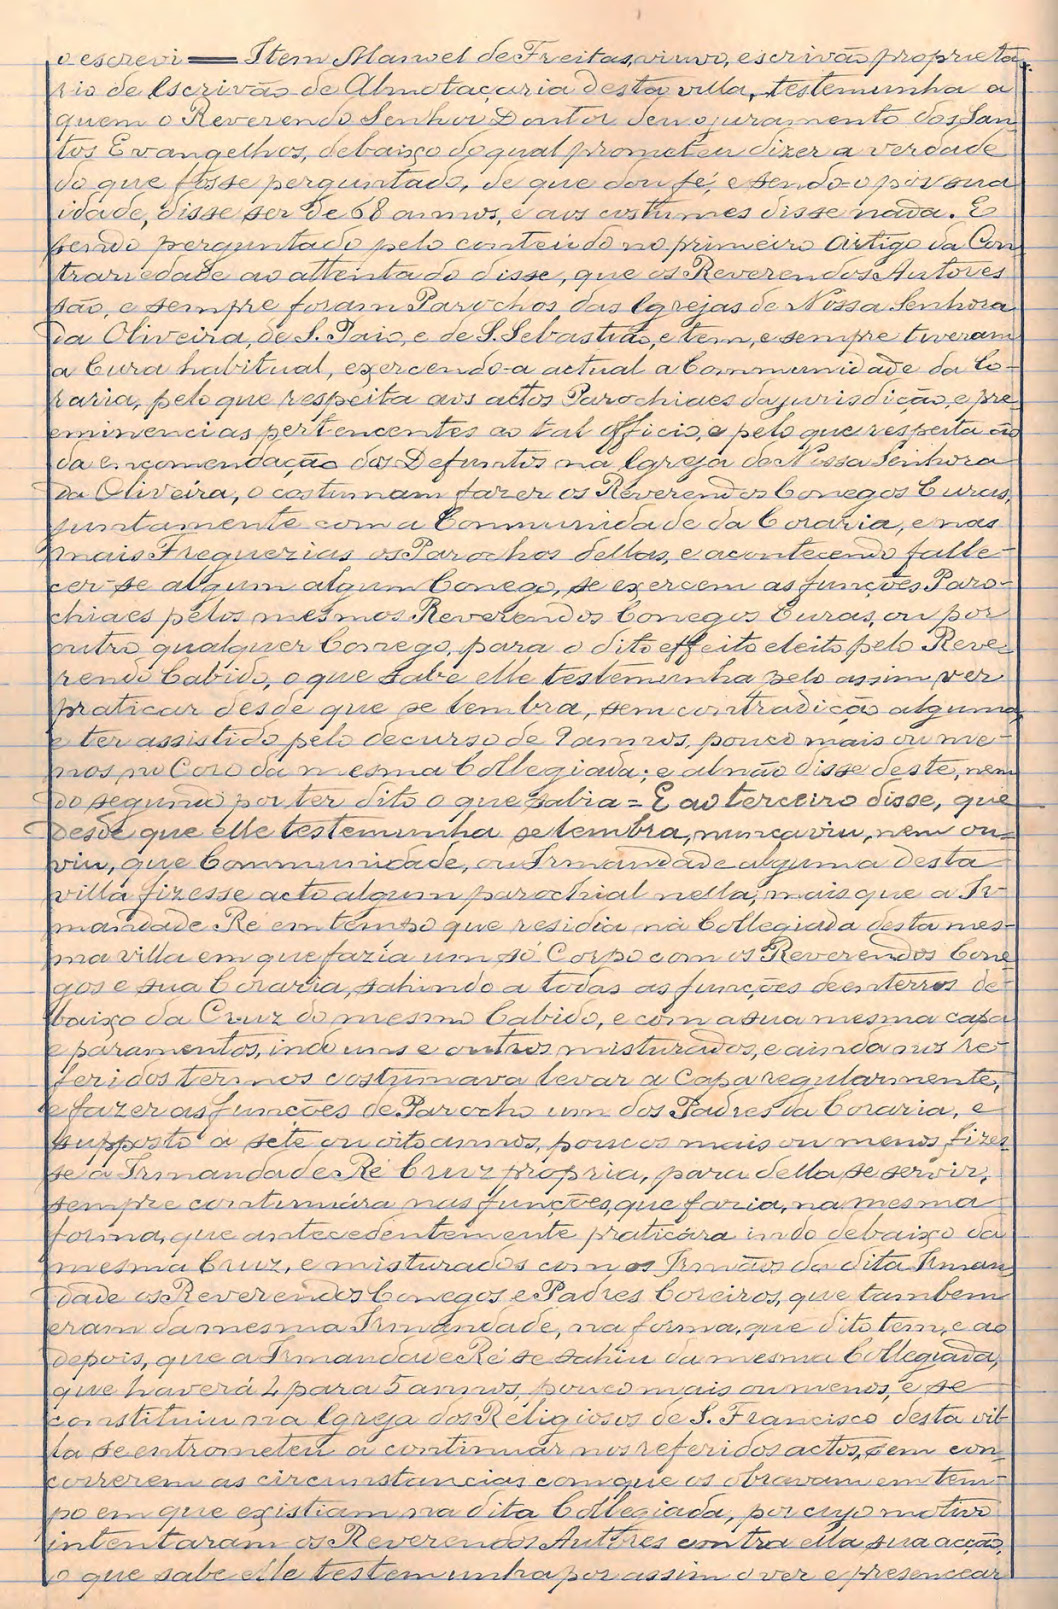 o escrevi = Item Manoel de Freitas, viuvo, escrivão proprietá-
rio de Escrivão de Almotaçaria desta villa, testemunha a
quem o Reverendo Senhor Doutor deu o juramento dos San-
tos Evangelhos, debaixo do qual prometeu dizer a verdade
do que fosse perguntado, de que dou fé, e sendo-o por sua
idade, disse ser de 68 annos, e aos costumes disse nada. E
sendo perguntado pelo conteúdo no primeiro Artigo da Con-
trariedade ao attentado disse, que os Reverendos Autores
são, e sempre foram Parochos das Igrejas de Nossa Senhora
da Oliveira, de S. Paio, e de S. Sebastião, e tem, e sempre tiveram
a Cura habitual, exercendo-a actual a Communidade da Co-
raria, pelo que respeita aos actos Parochiaes da jurisdição, e pre-
eminencias pertencentes ao tal officio, e pelo que respeita ao
da encomendação dos Defuntos na Igreja de Nossa Senhora
da Oliveira, o costumam fazer os Reverendos Conegos Curas,
juntamente com a Communidade da Coraria, e nas
mais Freguezias os Parochos dellas, e acontecendo falle-
cer-se algum algum Conego, se exercem as funções Paro-
chiaes pelos mesmos Reverendos Conegos Curas, ou por
outro qualquer Conego, para o dito effeito eleito pelo Reve-
rendo Cabido, o que sabe elle testemunha pelo assim ver
praticar desde que se lembra, sem contradição alguma,
e ter assistido pelo decurso de 9 annos, pouco mais ou me-
nos, no Coro da mesma Collegiada; e al não disse deste, nem
do segundo por ter dito o que sabia = E ao terceiro disse, que
desde que elle testemunha se lembra, nunca viu, nem ou-
viu, que Communidade, ou Irmandade alguma desta
villa fizesse acto algum parochial nella, mais que a Ir-
mandade Ré em tempo que residia na Collegiada desta mes-
ma villa em que fazia um só Corpo com os Reverendos Cone-
gos e sua Coraria, sahindo a todas as funções de enterros de-
baixo da Cruz do mesmo Cabido, e com a sua mesma capa
e paramentos, indo uns e outros misturados, e ainda nos re-
feridos termos costumava levar a Capa regularmente,
e fazer as funções de Parocho um dos Padres da Coraria, e
supposto á sete ou oito annos, poucos mais ou menos, fizes-
se a Irmandade Ré Cruz propria, para della se servir,
sempre continuára nas funções, que fazia, na mesma
forma, que antecedentemente praticára indo debaixo da
mesma Cruz, e misturados com os Irmãos da dita Irman-
dade os Reverendos Conegos e Padres Coreiros, que tambem
eram da mesma Irmandade, na forma, que dito tem, e ao
depois, que a Irmandade Ré se sahiu da mesma Collegiada,
que haverá 4 para 5 annos, pouco mais ou menos, e se
constituiu na Igreja dos Religiosos de S. Francisco desta vil-
la se entrometeu a continuar nos referidos actos, sem con-
correrem as circunstancias com que os obravam em tem-
po em que existiam na dita Collegiada, por cujo motivo
intentaram os Reverendos Autores contra ella sua acção,
o que sabe elle testemunha por assim o ver e presencear